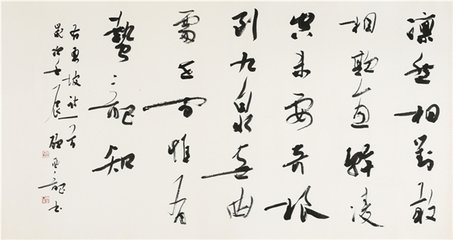 凛然相對敢
相欺直幹凌
空未要奇根
到九泉無曲
處世間惟有
蟄龍知
東坡詩一首
書